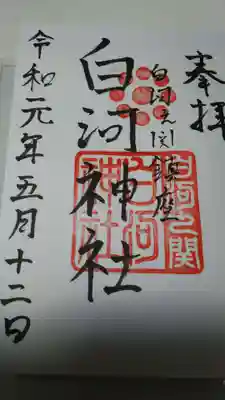 奉拝
白河之関鎮座
白河神社
白河之関
白河
神社
令和元年五月十二日